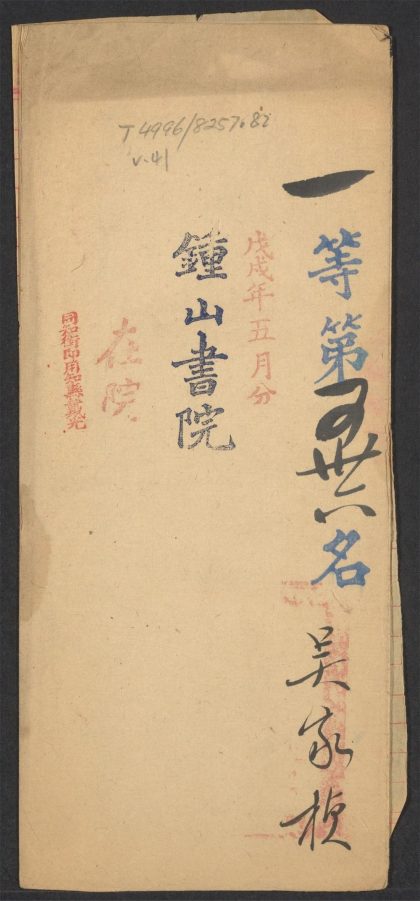 T 4996/8257.82
v.41
一等第百卅六名 吳家楨
戊戌年五月分
鍾山書院
在院
同知銜即用知縣戴光